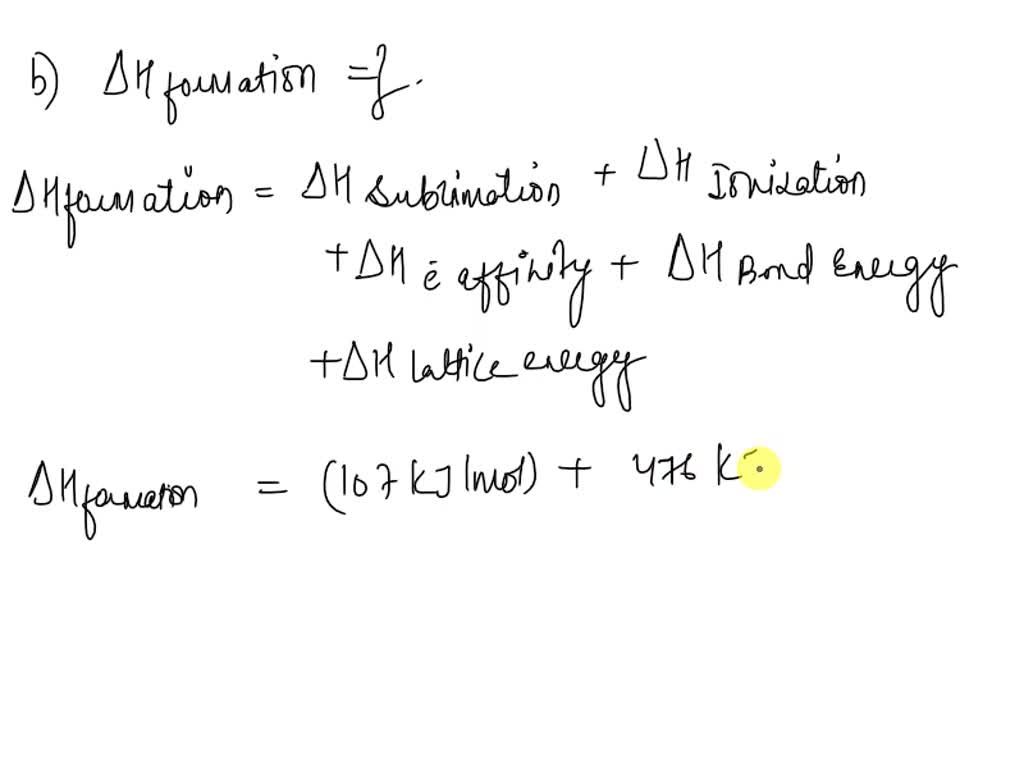 b) ΔH formation = ?.
ΔH formation = ΔH Sublimation + ΔH Ionization
+ ΔH ē affinity + ΔH Bond Energy
+ ΔH lattice energy
ΔH formation = (107 KJ/mol) + 476 K